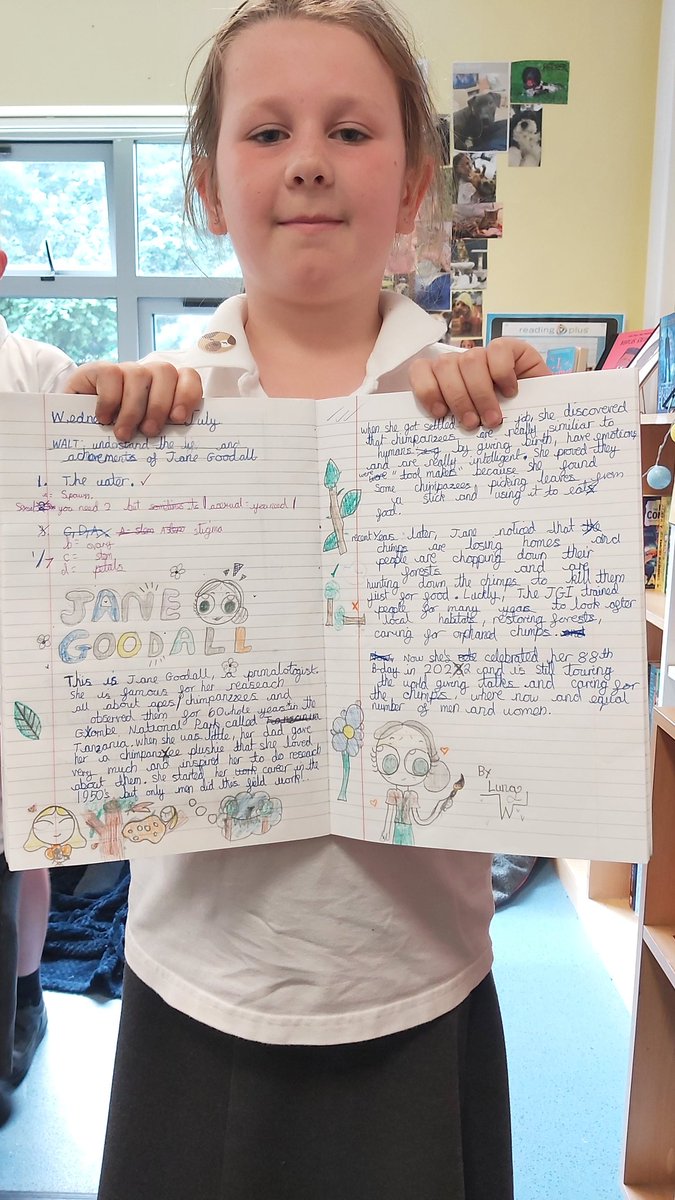 July
WALT: understand the life and
achievements of Jane Goodall
1. The water. ✓
= Spawn.
you need 2 but asexual you need 1
stigma
b = ovary
c = stem
d = petals
JANE
GOODALL
This is Jane Goodall, a primalogist.
She is famous for her reasearch
all about apes/chimpanzees and
observed them for 60 whole years in the
Gombe National Park called
Tanzania. when she was little, her dad gave
her a chimpanzee plushie that she loved
very much and inspired her to do reseach
about them. She started her work career in the
1950's but only men did this field work!
when she got settled her job, she discovered
that chimpanzees are really similiar to
humans by giving birth, have emotions
and are really intelligent. She proved they
were "tool makers" because she found
some chimpanzees picking leaves from
a stick and using it to eat
food.
recent Years: later, Jane noticed that the
chimps are losing homes and
people are chopping down their
forests and are
hunting down the chimps to kill them
just for food. Luckly, The JGI trained
people for many years to look after
local habitats, restoring forests,
caring for orphaned chimps.
Now she's celebrated her 88th
B-day in 2022 and is still touring
the world giving talks and caring for
the chimps where now and equal
number of men and women.
By
Luna
W
reading plus